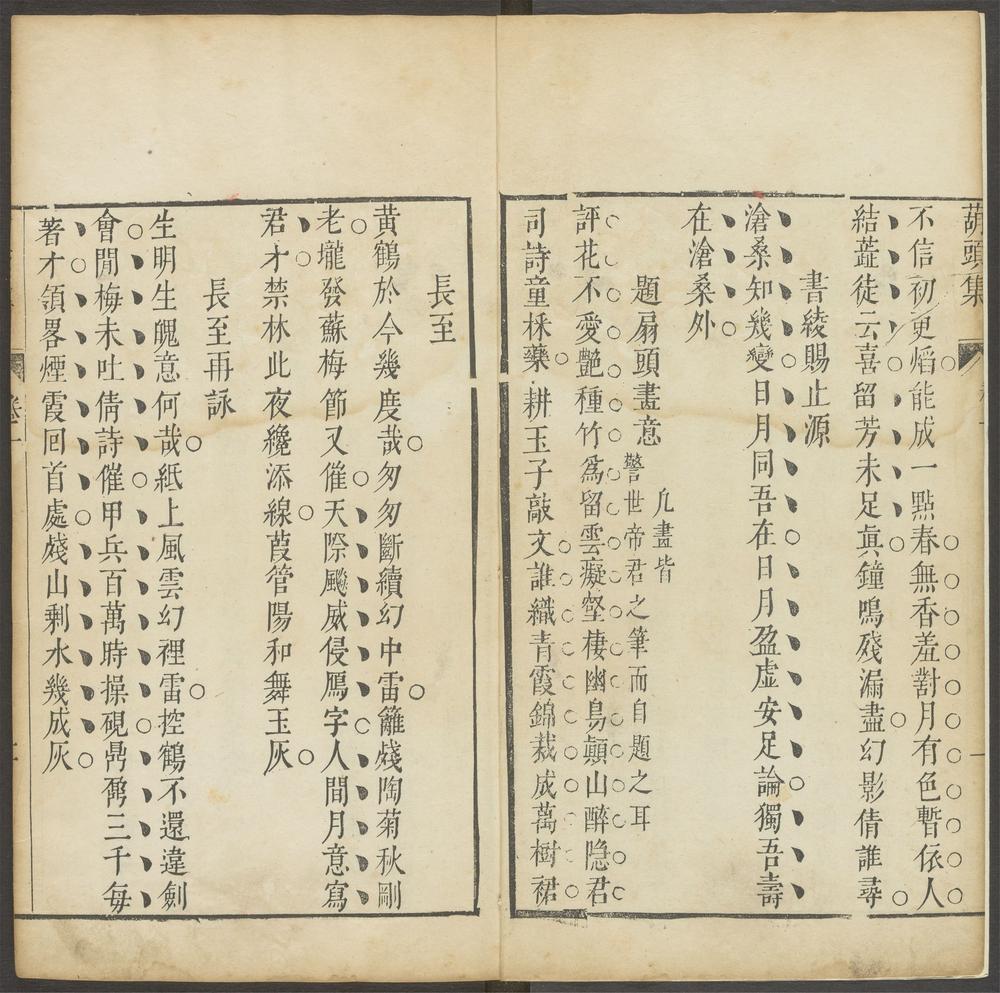 葫頭集
不信初更焰能成一點春無香羞對月有色暫依人
結蕋徒云喜留芳未足真鐘鳴殘漏盡幻影倩誰尋
書綾賜止源
滄桑知幾變日月同吾在日月盈虛安足論獨吾壽
在滄桑外
題扇頭畫意
凡畫皆
警世帝君之筆而自題之耳
評花不愛艷種竹為留雲癡壑棲幽鳥顛山醉隐君
司詩童採藥耕玉子敲文誰織青霞錦裁成萬樹裙
長至
黃鶴於今幾度哉匆匆斷續幻中雷籬殘陶菊秋剛
老壠發蘇梅節又催天際颷威侵鴈字人間月意寫
君才禁林此夜纔添線葭管陽和舞玉灰
長至再詠
生明生魄意何哉紙上風雲幻裡雷控鶴不還違劍
會閒梅未吐倩詩催甲兵百萬時操硯鼎鬵三千每
著才領畧煙霞回首處殘山剩水幾成灰
卷一